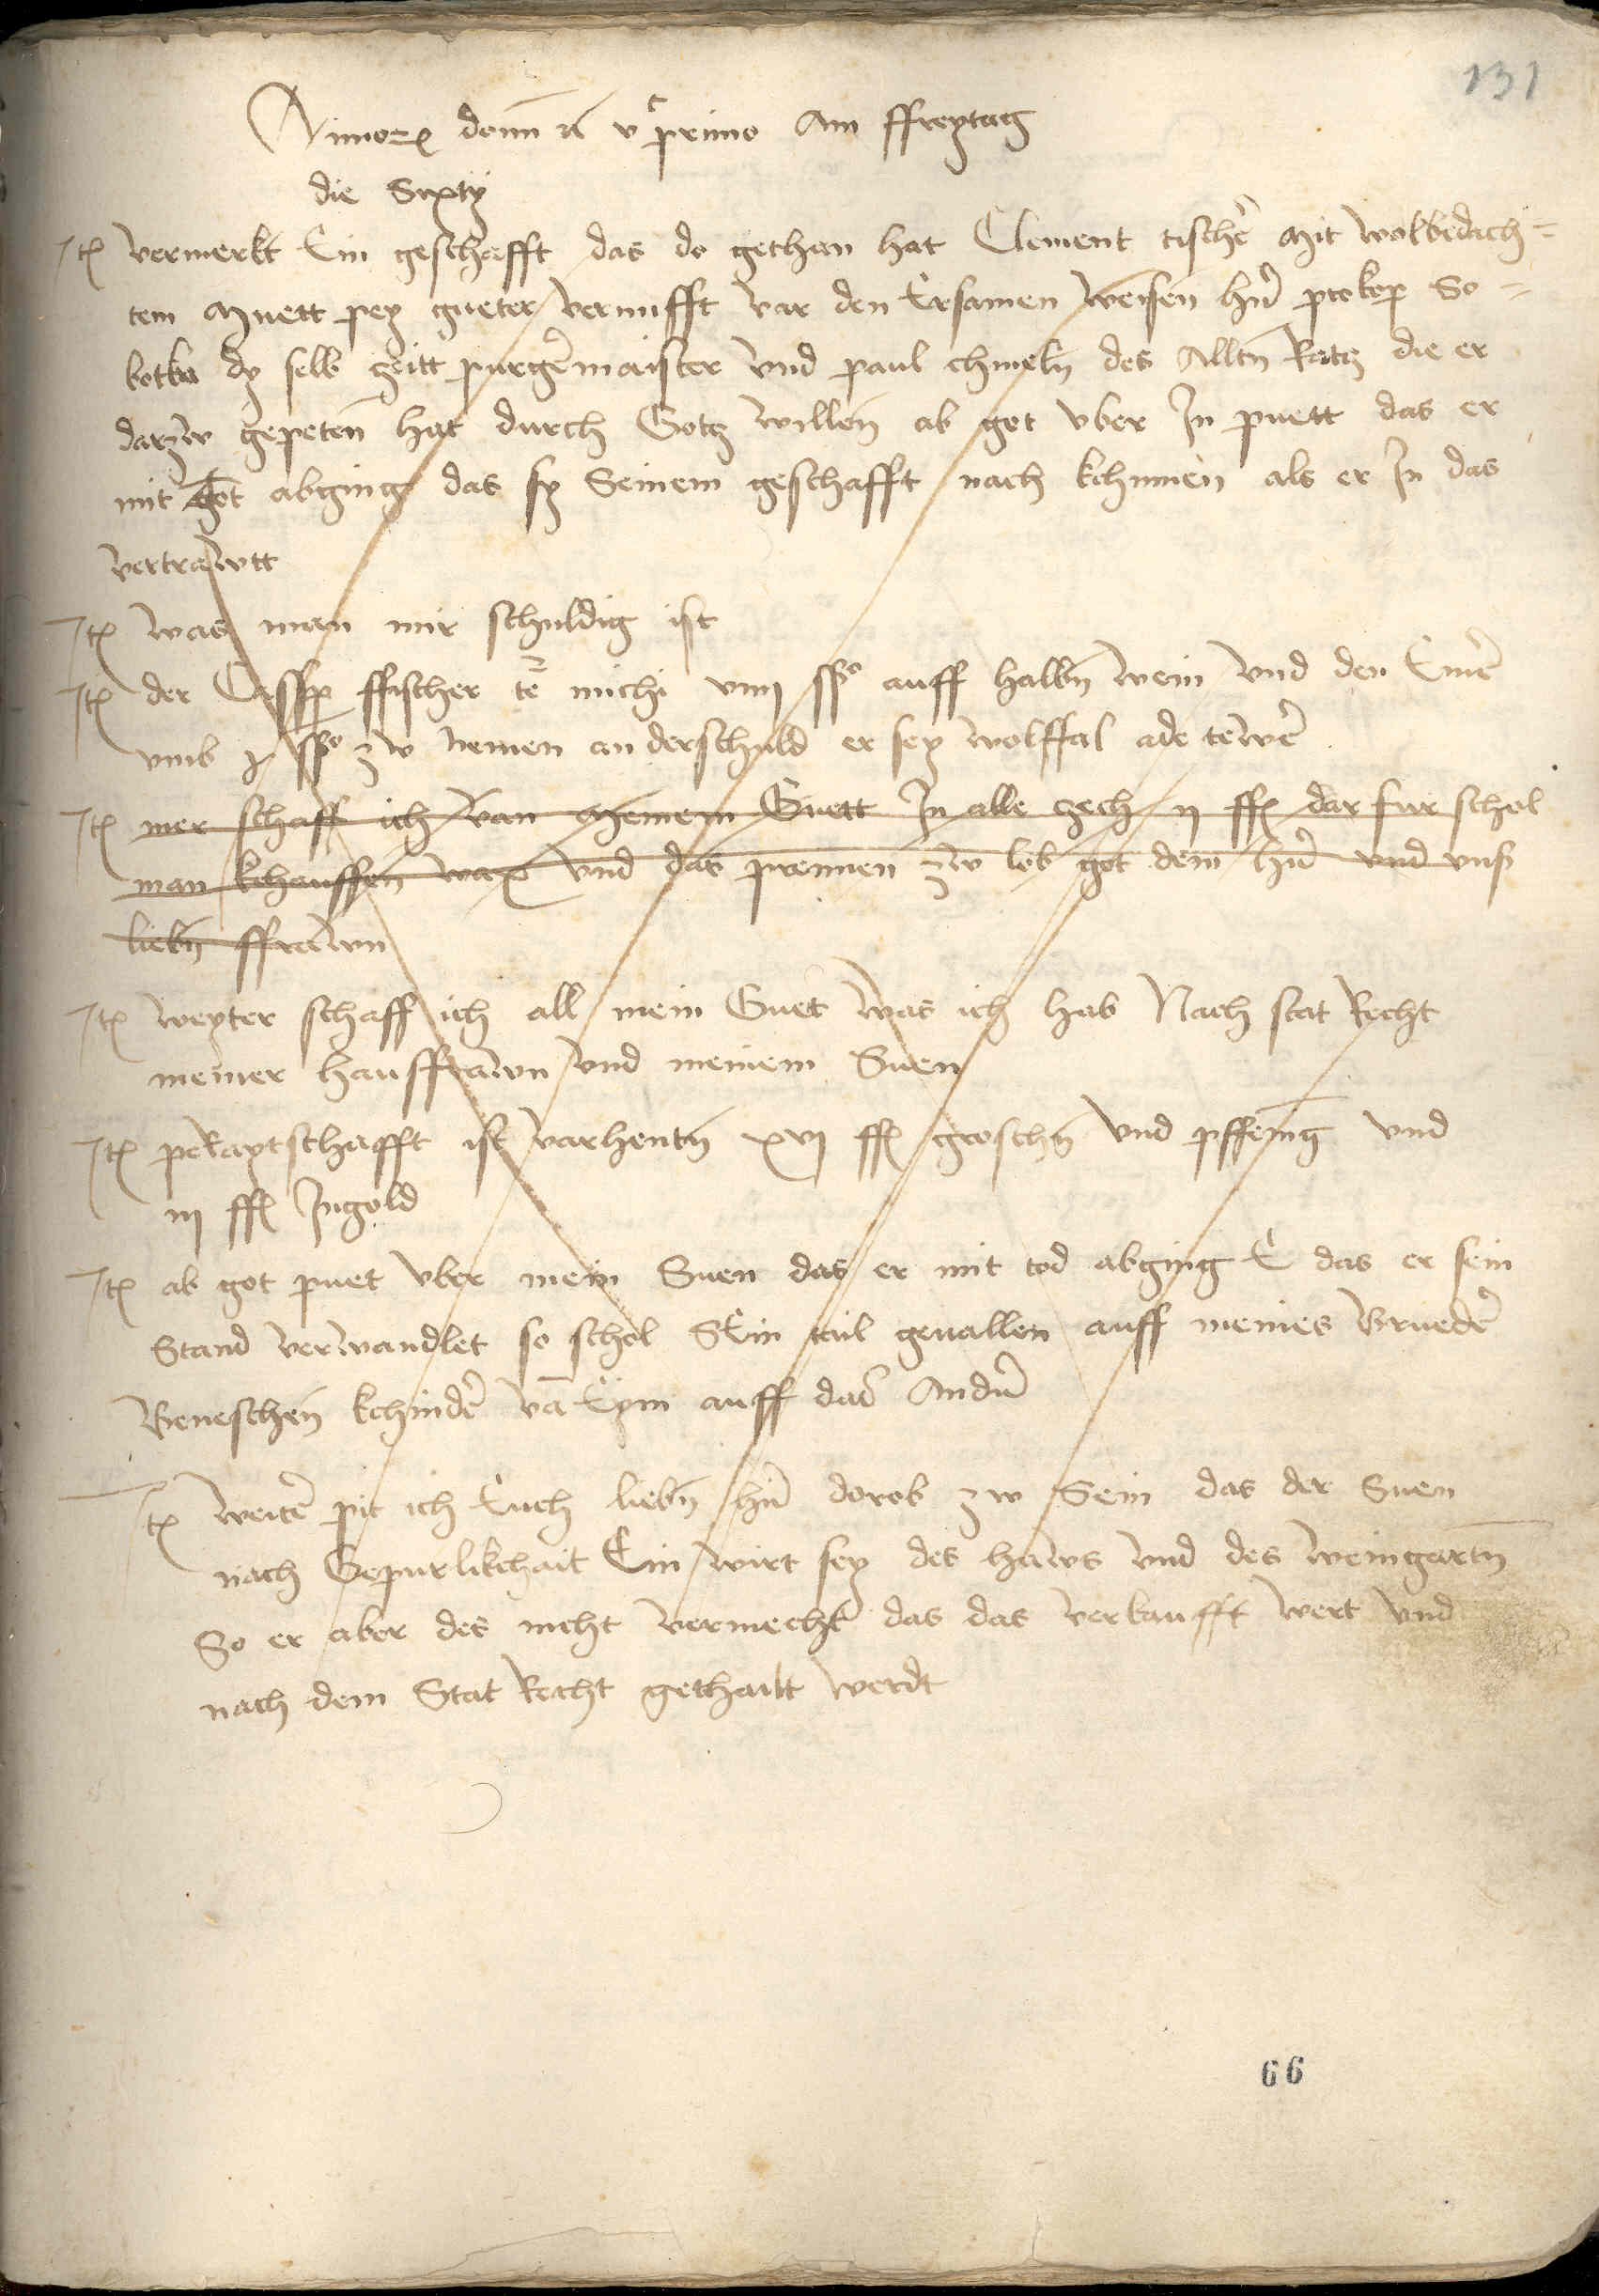 131
Annorum domini m vc primo Am ffreytag
die Sixty
Itē vermerkt Ein geschafft das do gethan hat Clement tischer Mit wolbedach=
tem Muett pey gueter vernufft var den Ersamen weisen hern prokop So=
botka dy selb zeitt purgermaister vnd paul chmeln des Alltn Ratz die er
darzw gepeten hat durch Gotz willen ab got vber In puett das er
mit tot abging das sy Seinem geschafft nach kchumen als er In das
vertrawtt
Itē was man mir schuldig ist
Itē der Casspar ffischer michi viiij sso auff halbn wein vnd den Emer
vmb sso zw nemen an der schuld er sey wolffal ader tewer
Itē mer schaff ich van Meinem Guett In alle zech ij ff dar fur schol
man kchauffen wax vnd das prennen zw lob got dem hern vnd vnser
liebn ffrawn
Itē weyter schaff ich all mein Guet was ich hab Nach stat Recht
meiner hausffrawn vnd meinem Suen
Itē peraytschafft ist varhentn xvj ff groschn vnd pffening vnd
iij ff In gold
Itē ab got puet vber mein Suen das er mit tod abging E das er sein
Stand verwandlet so schol Sein tail geuallen auff meines Brueder
Beneschen kchinder van Eym auff das Ander
Itē weiter pit ich Euch liebn hern dorob zw Sein das der Suen
nach Gepurlikchait Ein wirt sey des haws vnd des weingartn
So er aber des nicht vermecht das das verkaufft wert vnd
nach dem Stat Recht gethailt werdt
66